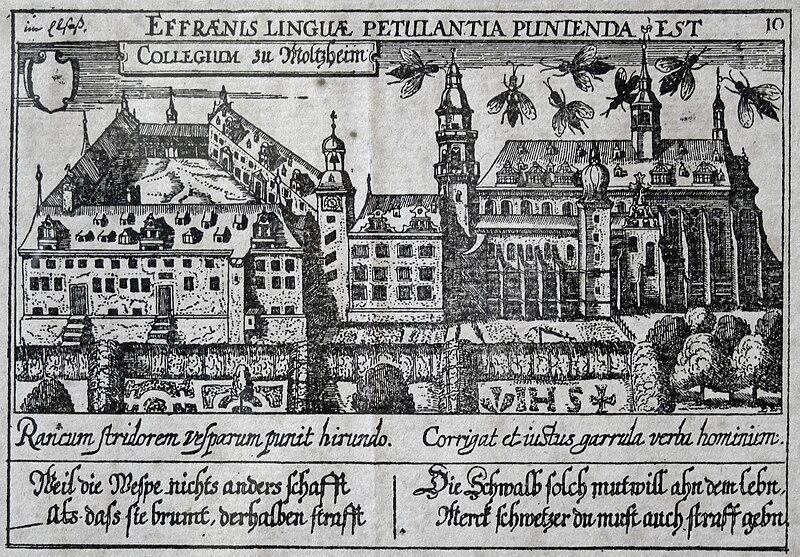 im Elsaß.
EFFRÆNIS LINGUÆ PETULANTIA PUNIENDA EST
10
COLLEGIUM zu Moltzheim
IHS
Rancum stridorem vesparum punit hirundo. Corrigat et iustus garrula verba hominum.
Weil die Wespe nichts anders schafft
Als dass sie brumt, derhalben strafft
Die Schwalb solch mutwill ahn dem lebn,
Merck schwetzer du must auch straff gebn.